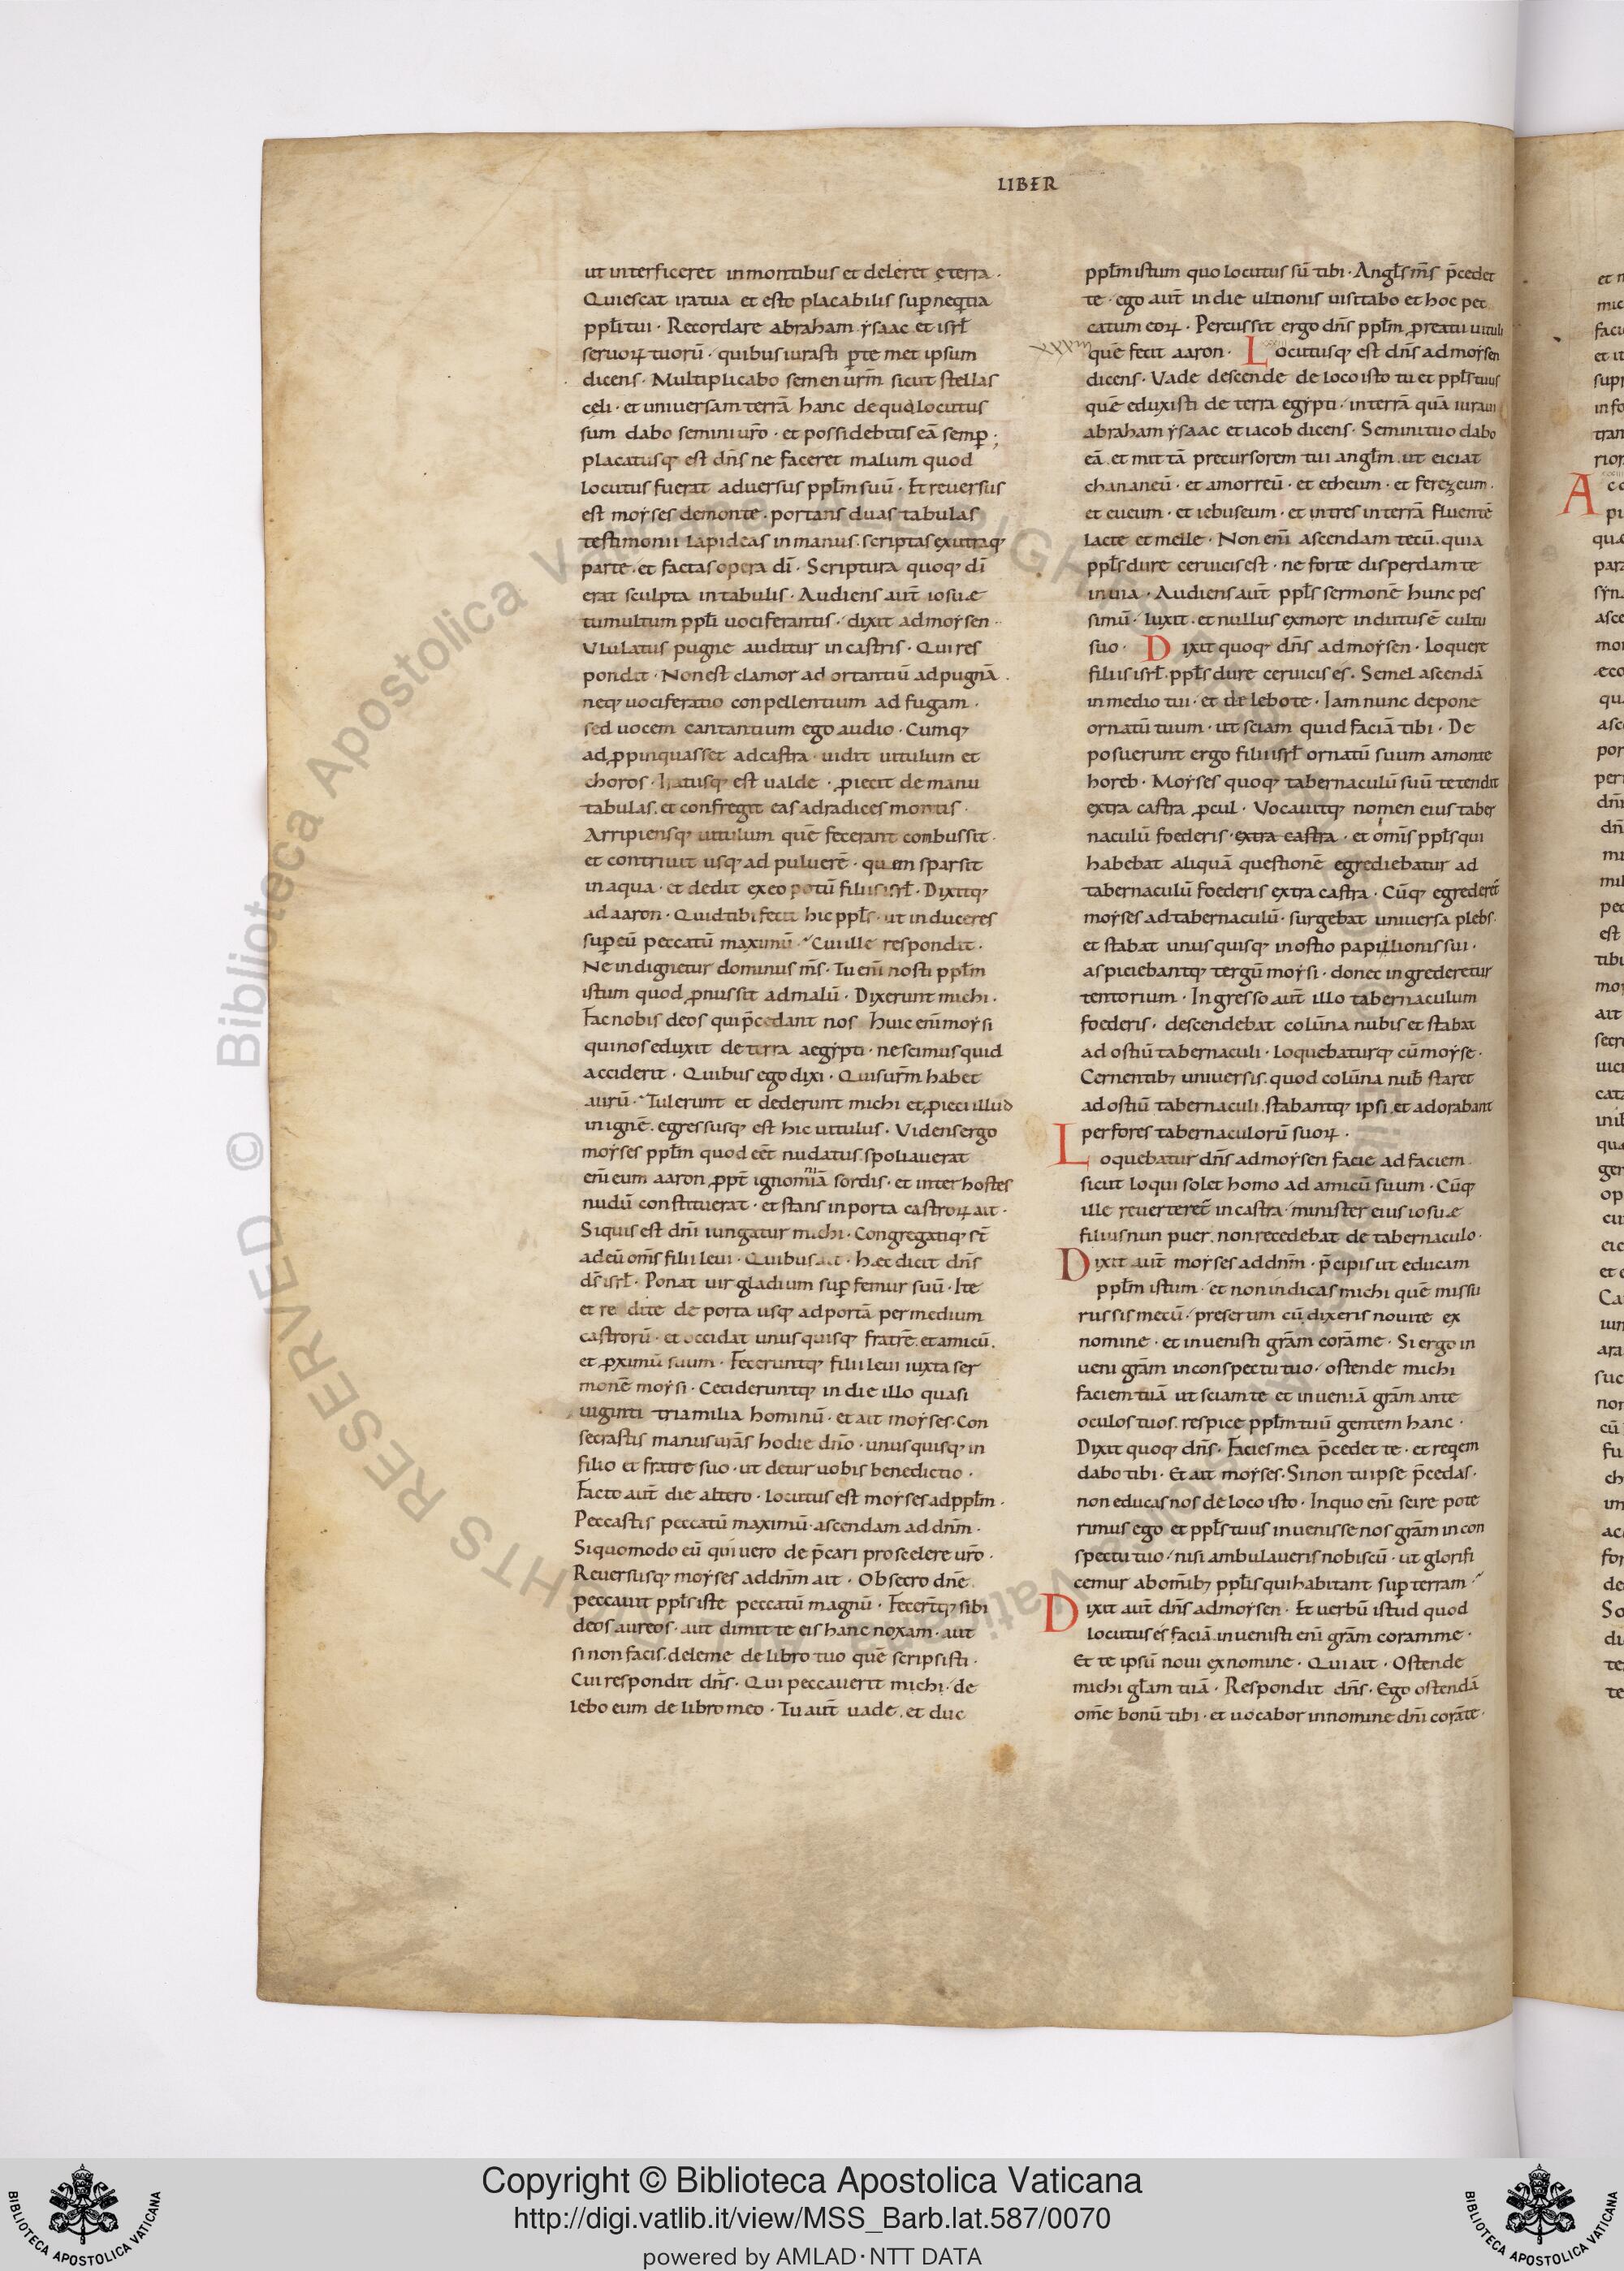 LIBER
ut interficeret in montibus et deleret ę terra ·
Quiescat ira tua et esto placabilis sup neqtia
ppłi tui · Recordare abraham ẏsaac et isrł
seruoꝝ tuorū · quibus iurasti ꝑ te met ipsum
dicens · Multiplicabo semen ur̄m sicut stellas
cęli · et uniuersam terrā hanc de qua locutus
sum dabo semini ur̄o · et possidebitis eā semꝑ ;
placatusq; est dn̄s ne faceret malum quod
locutus fuerat aduersus ppłm suū · Et reuersus
est moẏses de monte · portans duas tabulas
testimonii lapideas in manus · scriptas ex utraq;
parte · et factas opera dī · Scriptura quoq; dī
erat sculpta in tabulis · Audiens aūt iosuæ
tumultum ppłi uociferantis · dixit ad moẏsen ·
Vlulatus pugne auditur in castris · Qui res
pondit · Non est clamor ad ortantiū ad pugnā ·
neq; uociferatio conpellentium ad fugam ·
sed uocem cantantium ego audio · Cumq;
adꝓpinquasset ad castra · uidit uitulum et
choros · Iratusq; est ualde · ꝓiecit de manu
tabulas · et confregit eas ad radices montis ·
Arripiensq; uitulum quē fecerant combussit ·
et contriuit usq; ad puluerē · quem sparsit
in aqua · et dedit ex eo potū filiis isrł · Dixitq;
ad aaron · Quid tibi fecit hic ppłs · ut induceres
sup eū peccatū maximū · Cui ille respondit ·
Ne indignetur dominus m̄s · Tu eni nosti ppłm
istum quod ꝓnus sit ad malū · Dixerunt michi ·
Fac nobis deos qui p̄cedant nos · huic eni moẏsi
qui nos eduxit de terra aegẏpti · nescimus quid
acciderit · Quibus ego dixi · Quis ur̄m habet
aurū · Tulerunt et dederunt michi et ꝓieci illud
in ignē · egressusq; est hic uitulus · Videns ergo
moẏses ppłm quod eēt nudatus · spoliauerat
eni eum aaron ꝓpt ignominiā sordis · et inter hostes
nudū constituerat · et stans in porta castroꝝ ait ·
Siquis est dn̄i iungatur michi · Congregatiq; st̄
ad eū om̄s filii leui · Quibus ait · hæc dicit dn̄s
ds̄ isrł · Ponat uir gladium sup femur suū · Ite
et re dite de porta usq; ad portā per medium
castrorū · et occidat unusquisq; fratrē · et amicū ·
et ꝓximū suum · Feceruntq; filii leui iuxta ser
monē moẏsi · Cecideruntq; in die illo quasi
uiginti tria milia hominū · et ait moẏses · Con
secrastis manus ur̄as hodie dn̄o · unusquisq; in
filio et fratre suo · ut detur uobis benedictio ·
Facto aūt die altero · locutus est moẏses ad ppłm ·
Peccastis peccatū maximū · ascendam ad dn̄m ·
Siquomodo eū quiuero de p̄cari pro scelere ur̄o ·
Reuersusq; moẏses ad dn̄m ait · Obsecro dn̄e
peccauit ppłs iste peccatū magnū · Fecert̄q; sibi
deos aureos · aut dimitte eis hanc noxam · aut
si non facis · dele me de libro tuo quē scripsisti ·
Cui respondit dn̄s · Qui peccauerit michi · de
lebo eum de libro meo · Tu aūt uade · et duc
ppłm istum quo locutus sū tibi · Angłs m̄s p̄cedet
te · ego aūt in die ultionis uisitabo et hoc pec
catum eoꝝ · Percussit ergo dn̄s ppłm ꝓ reatu uituli
xxxiii quē fecit aaron · Locutusq; est dn̄s ad moẏsen
dicens · Vade descende de loco isto tu et ppłs tuus
quē eduxisti de terra egẏpti · in terrā quā iuraui
abraham ẏsaac et iacob dicens · Semini tuo dabo
eā · et mittā precursorem tui angłm · ut eiciat
chananeū · et amorreū · et etheum · et ferezeum ·
et eueum · et iebuseum · et intres in terrā fluentē
lacte et melle · Non eni ascendam tecū · quia
ppłs dure ceruicis est · ne forte disperdam te
in uia · Audiens aūt ppłs sermonē hunc pes
simū · luxit · et nullus ex more indutus ē cultu
suo · Dixit quoq; dn̄s ad moẏsen · loquere
filiis isrł · ppłs dure ceruicis es · Semel ascendā
in medio tui · et delebo te · Iam nunc depone
ornatū tuum · ut sciam quid faciā tibi · De
posuerunt ergo filii isrł ornatū suum a monte
horeb · Moẏses quoq; tabernaculū suū tetendit
extra castra ꝓcul · Vocauitq; nomen eius taber
naculū foederis · extra castra · et om̄is ppłs qui
habebat aliquā questionē egrediebatur ad
tabernaculū foederis extra castra · Cūq; egrederet̄
moẏses ad tabernaculū · surgebat uniuersa plebs ·
et stabat unusquisq; in ostio papillionis sui ·
aspiciebantq; tergū moẏsi · donec ingrederetur
tentorium · Ingresso aūt illo tabernaculum
foederis · descendebat colūna nubis et stabat
ad ostiū tabernaculi · loquebaturq; cū moẏse ·
Cernentib; uniuersis · quod colūna nub̄ staret
ad ostiū tabernaculi · stabantq; ipsi · et adorabant
per fores tabernaculorū suoꝝ ·
Loquebatur dn̄s ad moẏsen facie ad faciem ·
sicut loqui solet homo ad amicū suum · Cūq;
ille reuerteret̄ in castra · minister eius iosuæ
filius nun puer · non recedebat de tabernaculo ·
Dixit aūt moẏses ad dn̄m · p̄cipis ut educam
ppłm istum · et non indicas michi quē missu
rus sis mecū · presertim cū dixeris noui te ex
nomine · et inuenisti gr̄am corā me · Si ergo in
ueni gr̄am in conspectu tuo · ostende michi
faciem tuā ut sciam te et inueniā gr̄am ante
oculos tuos · respice ppłm tuū gentem hanc ·
Dixit quoq; dn̄s · Facies mea p̄cedet te · et reqem
dabo tibi · Et ait moẏses · Si non tu ipse p̄cedas ·
non educas nos de loco isto · In quo eni scire pote
rimus ego et ppłs tuus inuenisse nos gr̄am in con
spectu tuo · nisi ambulaueris nobiscū · ut glorifi
cemur ab om̄ib; ppłis qui habitant sup terram ·
Dixit aūt dn̄s ad moẏsen · Et uerbū istud quod
locutus es faciā · inuenisti eni gr̄am coram me ·
Et te ipsū noui ex nomine · Qui ait · Ostende
michi głam tuā · Respondit dn̄s · Ego ostendā
om̄e bonū tibi · et uocabor in nomine dn̄i corā te ·
© Biblioteca Apostolica Vaticana ALL RIGHTS RESERVED
Copyright © Biblioteca Apostolica Vaticana
http://digi.vatlib.it/view/MSS_Barb.lat.587/0070
powered by AMLAD·NTT DATA
BIBLIOTECA APOSTOLICA VATICANA
BIBLIOTECA APOSTOLICA VATICANA